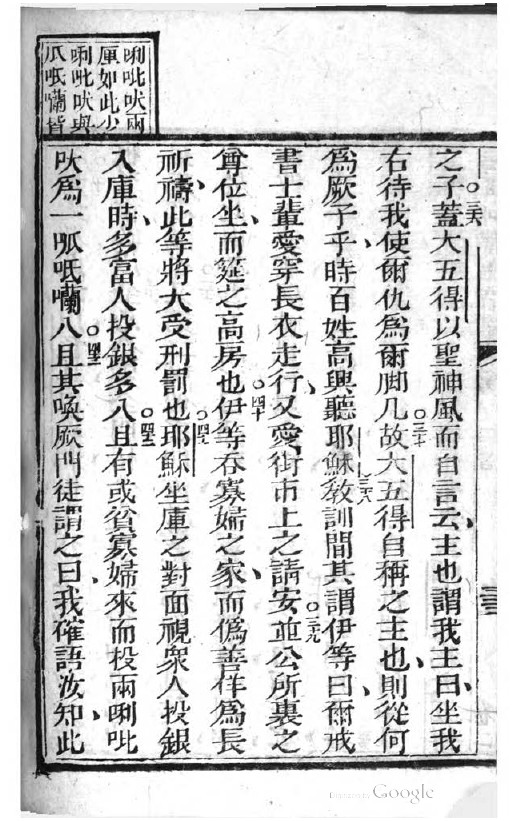 唎吡吠兩
厘如此少
唎吡吠與
呱呧嚹皆
之子蓋大五得以聖神風而自言云主也謂我主曰坐我
右待我使爾仇爲爾脚几故大五得自稱之主也則從何
爲厥子乎時百姓高興聽耶穌教訓間其謂伊等曰爾戒
書士輩愛穿長衣走行又愛街市上之請安並公所裏之
尊位坐而筵之高房也伊等吞寡婦之家而僞善佯爲長
祈禱此等將大受刑罰也耶穌坐庫之對面視衆人投銀
入庫時多富人投銀多入且有或貧寡婦來而投兩唎吡
吠爲一呱呧嚹入且其喚厥門徒謂之曰我確語汝知此
三六
三七
三八
三九
四十
四一
四二
四三
Digitized by Google